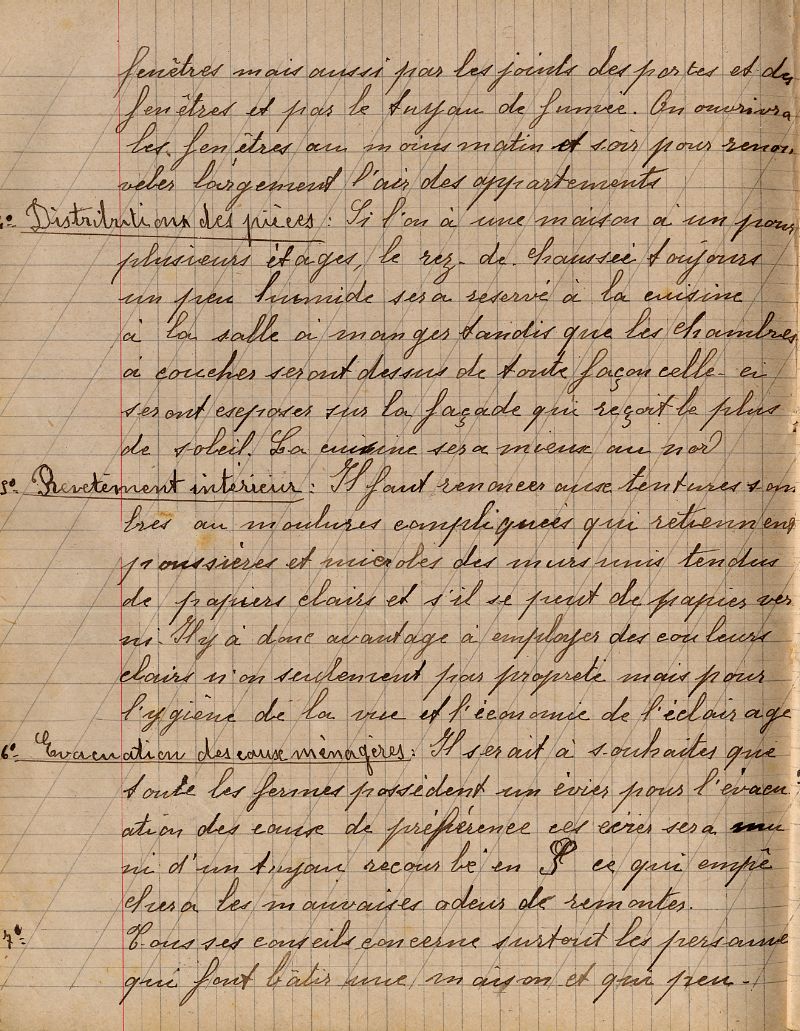 fenêtres mais aussi par les joints des portes et des
fenêtres et par le tuyau de fumée. On ouvrira
les fenêtres au moins matin et soir pour renou
veler largement l'air des appartements
4º Distribition des pièces : Si l'on à une maison à un pour
plusieurs étages, le rez-de-chaussée toujours
un peu humide sera reservé à la cuisine
à la salle à manger tandis que les chambres
à coucher seront dessus de toute façon celle-ci
seront exposer sur la façade qui reçoit le plus
de soleil. La cuisine sera mieux au nord
5º Revetêment intérieur : Il faut renoncer aux tentures som
bres au moulures compliquées qui retiennent
poussières et microbes des murs unis tendus
de papiers clairs et s'il se peut de papier ver
ni. Il y à donc avantage à employer des couleurs
clairs n'on seulement par propreté mais pour
l'ygiène de la vue et l'économie de l'éclairage
6º Evacuation des eaux ménagères : Il serait à souhaites que
toute les fermes possèdent un évier pour l'évacu
ation des eaux de préférence ces evier sera mu
ni d'un tuyau recourbé en S ce qui empê
chera les mauvaises odeur de remonter.
7º Tous ses conseils concerne surtout les personne
qui font bâtir une maison et qui peu-